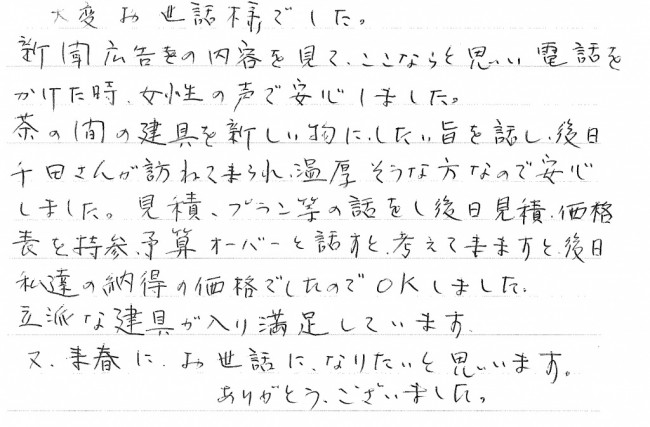 大変お世話様でした。
新聞広告をの内容を見て、ここならと思い電話を
かけた時、女性の声で安心しました。
茶の間の建具を新しい物に、したい旨を話し、後日
千田さんが訪ねて来られ、温厚そうな方なので安心
しました。見積、プラン等の話をし後日見積、価格
表を持参、予算オーバーと話すと、考えて来ますと、後日
私達の納得の価格でしたのでOKしました。
立派な建具が入り満足しています。
又、来春に、お世話に、なりたいと思います。
ありがとう、ございました。